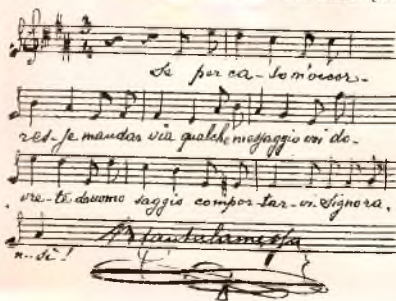 Se per ca-so m'occor-
res-se mandar via qualche messaggio voi do-
vre-te da uomo saggio compor-tar-vi. Signora,
n..sì!